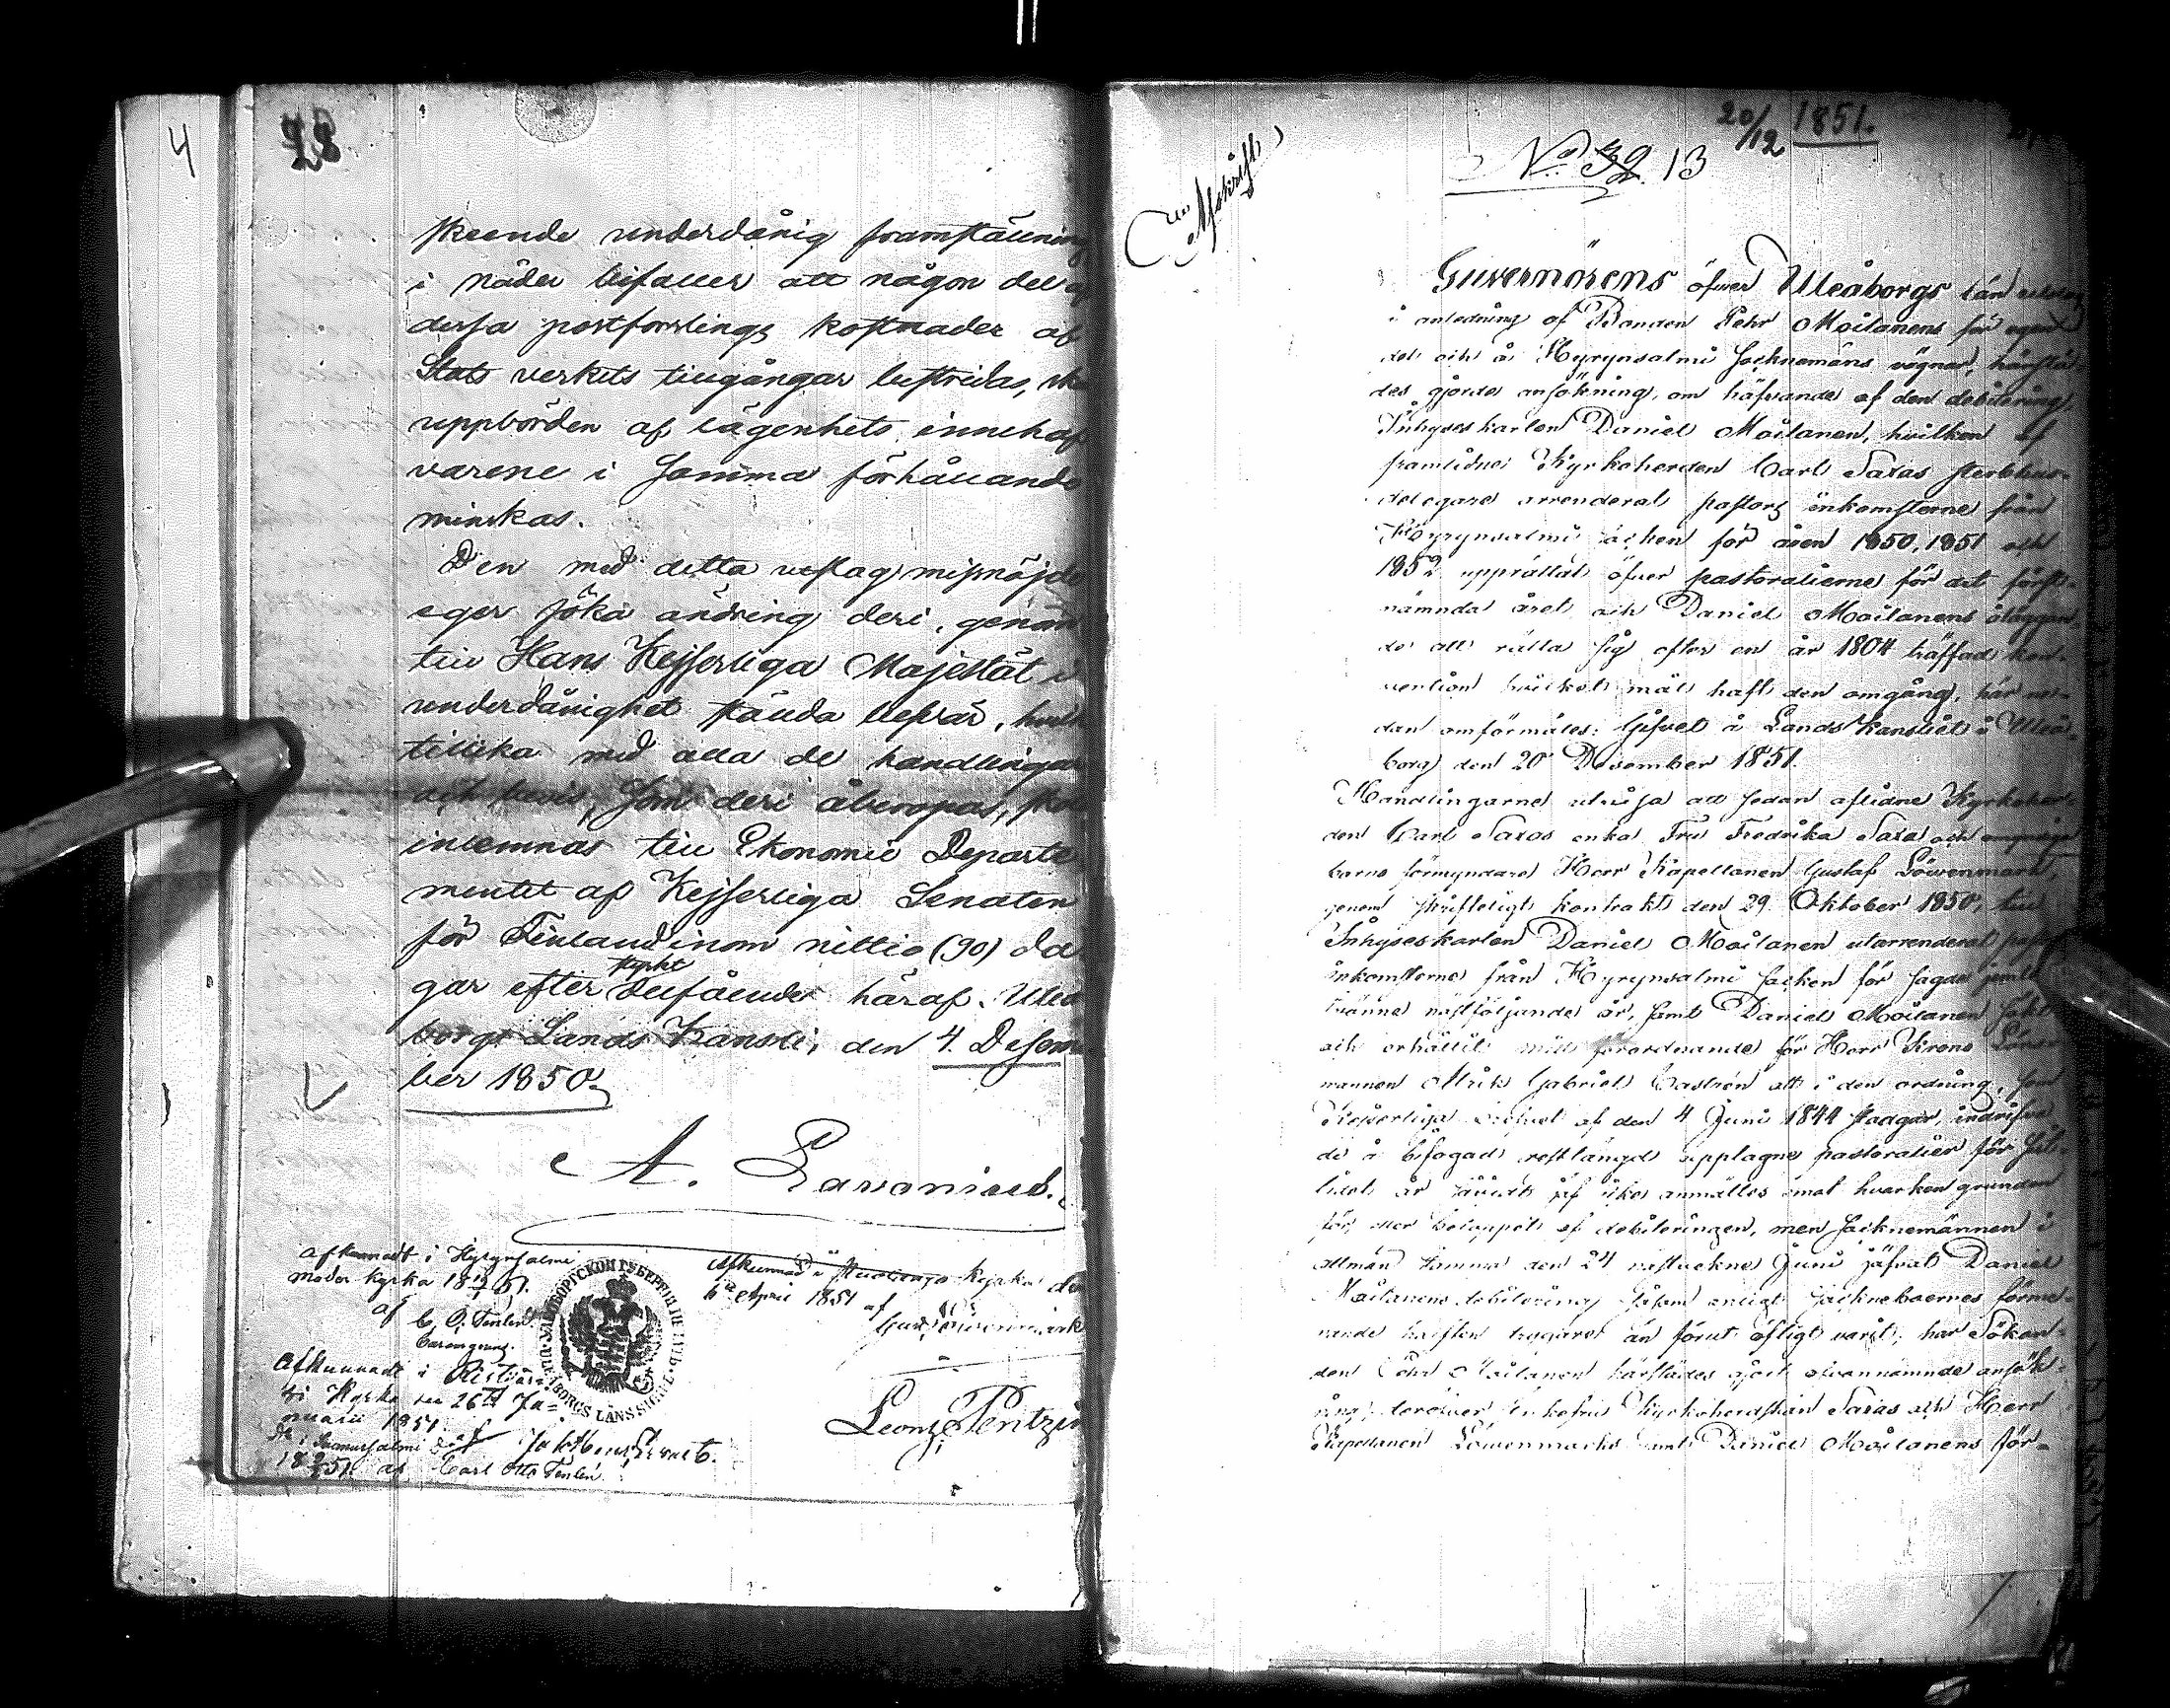 4
28
skeende underdånig framställning
i nåder bifaller att någon del af
dessa postforslings kostnader af
Stats verkets tillgångar bestridas, ska
uppbörden af lägenhets innehaf
varene i samma förhållande
minskas.
Den med detta utslag missnöjde
eger söka ändring deri, genom
till Hans Kejserliga Majestät i
underdånighet stälda besvär, hvilka
tillika med alla de handlingar
och bevis, som deri åberopas, skola
inlemnas till Ekonomie Departe
mentet af Kejserliga Senaten
för Finland inom nittio (90) da
gar efter skyhet delfåendet häraf. Uleå
borgs Lands Kansli, den 4. Decem
ber 1850.
A. Lavonius.
Afkunnadt i Hyrynsalmi
moder kyrka
af C. O. Tenlén
Afkunnad i kyrka den
6te April 1851 af
Gust. Löwenmark
Afkunnadt i Ristijär
vi Kyrka den 26te Ja=
nuarii 1851. af
Do i Suomussalmi
af Carl Otto Tenlén.
ULEÅBORGS LÄNS SIGILL
Leonz Pentzin
20/12 1851.
No 32 13
Afskrift
Guvernörens öfver Uleåborgs län utslag
i anledning af Bonden Pehr Moilanens för egen
del och å Hyrynsalmi Socknemäns vägnar, härstä
des gjorde ansökning, om häfvande af den debitering,
Inhyseskarlen Daniel Moilanen, hvilken af
framlidne Kyrkoherden Carl Saxas sterbhus-
delegare arrenderat pastors inkomsterne från
Hyrynsalmi socken för åren 1850, 1851 och
1852 upprättat öfver pastoralierne för det först-
nämnda året och Daniel Moilanens åläggan-
de att rätta sig efter en år 1804 träffad kon-
vention hvilket mål haft den omgång, här ne-
dan omförmäles; Gifvet å Lands Kansliet i Uleå-
borg den 20 December 1851.
Handlingarne utvisa att sedan aflidne Kyrkoher-
den Carl Saxas enka Fru Fredrika Saxa och omyndige
barns förmyndare Herr Kapellanen Gustaf Löwenmark,
genom skriftligt kontrakt den 29 Oktober 1850, till
Inhyseskarlen Daniel Moilanen utarrenderat pastors
inkomsterne från Hyrynsalmi socken för sagde jemte
tvänne nästföljande år, samt Daniel Moilanen sökt
och erhållit mitt förordnande för Herr Krono Läns-
mannen Ulrik Gabriel Castrén att i den ordning, som
Kejserliga brefvet af den 4 Juni 1844 stadgar, indrifva
de å bifogad restlängd upptagne pastoralier för
år
för, eller beloppet af debiteringen, men Socknemännen i
allmän stämma den 24 nästvekne Juni jäfvat Daniel
Moilanens debitering såsom enligt socknebornes förme-
nande hälften högare än förut öfligt varit, har Sökan-
den Pehr Moilanen härstädes gjort ofvannämnde ansök-
ning; deröfver Enkefru Kyrkoherdskan Saxas och Herr
Kapellanen Löwenmarks samt Daniel Moilanens för-